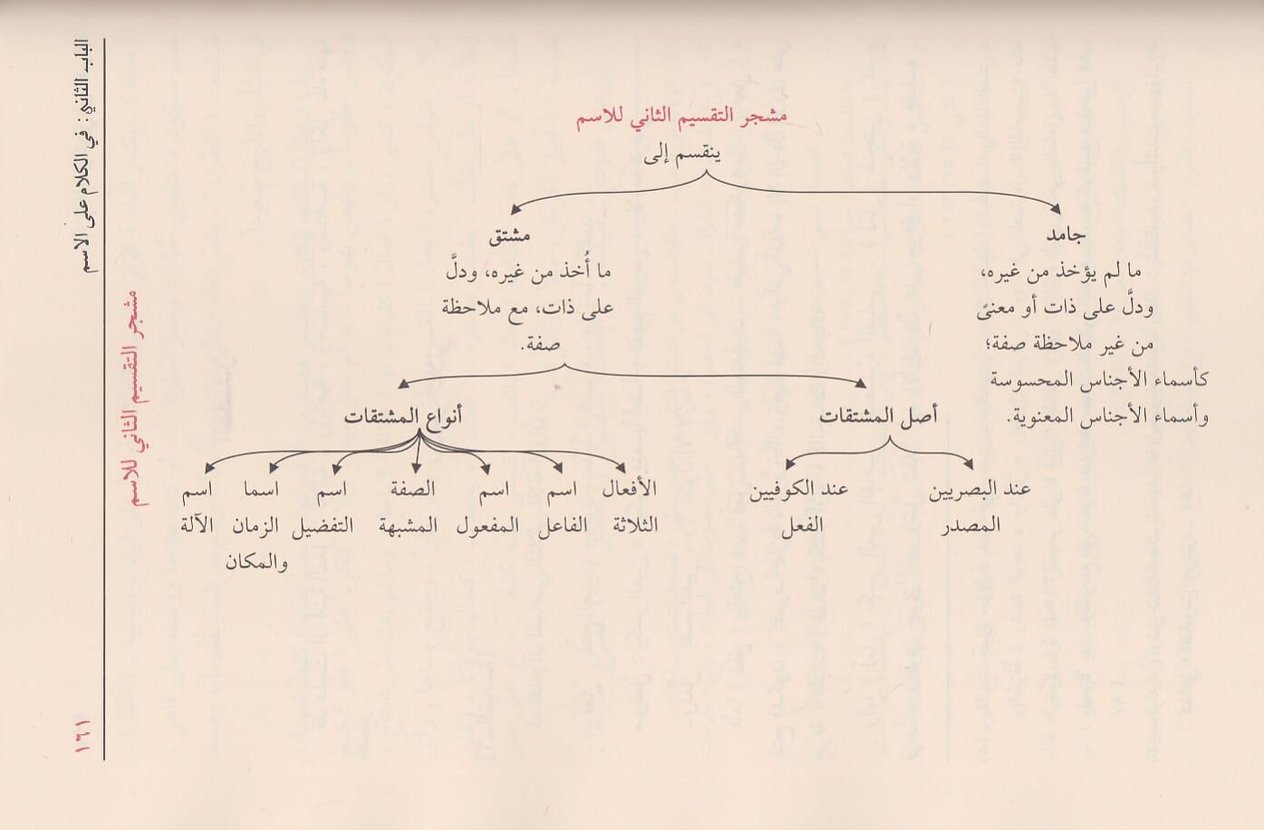 الباب الثاني: في الكلام على الاسم
مشجر التقسيم الثاني للاسم
١٦١
مشجر التقسيم الثاني للاسم
ينقسم إلى
جامد
ما لم يؤخذ من غيره،
ودلَّ على ذات أو معنىً
من غير ملاحظة صفة؛
كأسماء الأجناس المحسوسة
وأسماء الأجناس المعنوية.
مشتق
ما أُخذ من غيره، ودلَّ
على ذات، مع ملاحظة
صفة.
أصل المشتقات
عند البصريين
المصدر
عند الكوفيين
الفعل
أنواع المشتقات
الأفعال
الثلاثة
اسم
الفاعل
اسم
المفعول
الصفة
المشبهة
اسم
التفضيل
اسما
الزمان
والمكان
اسم
الآلة